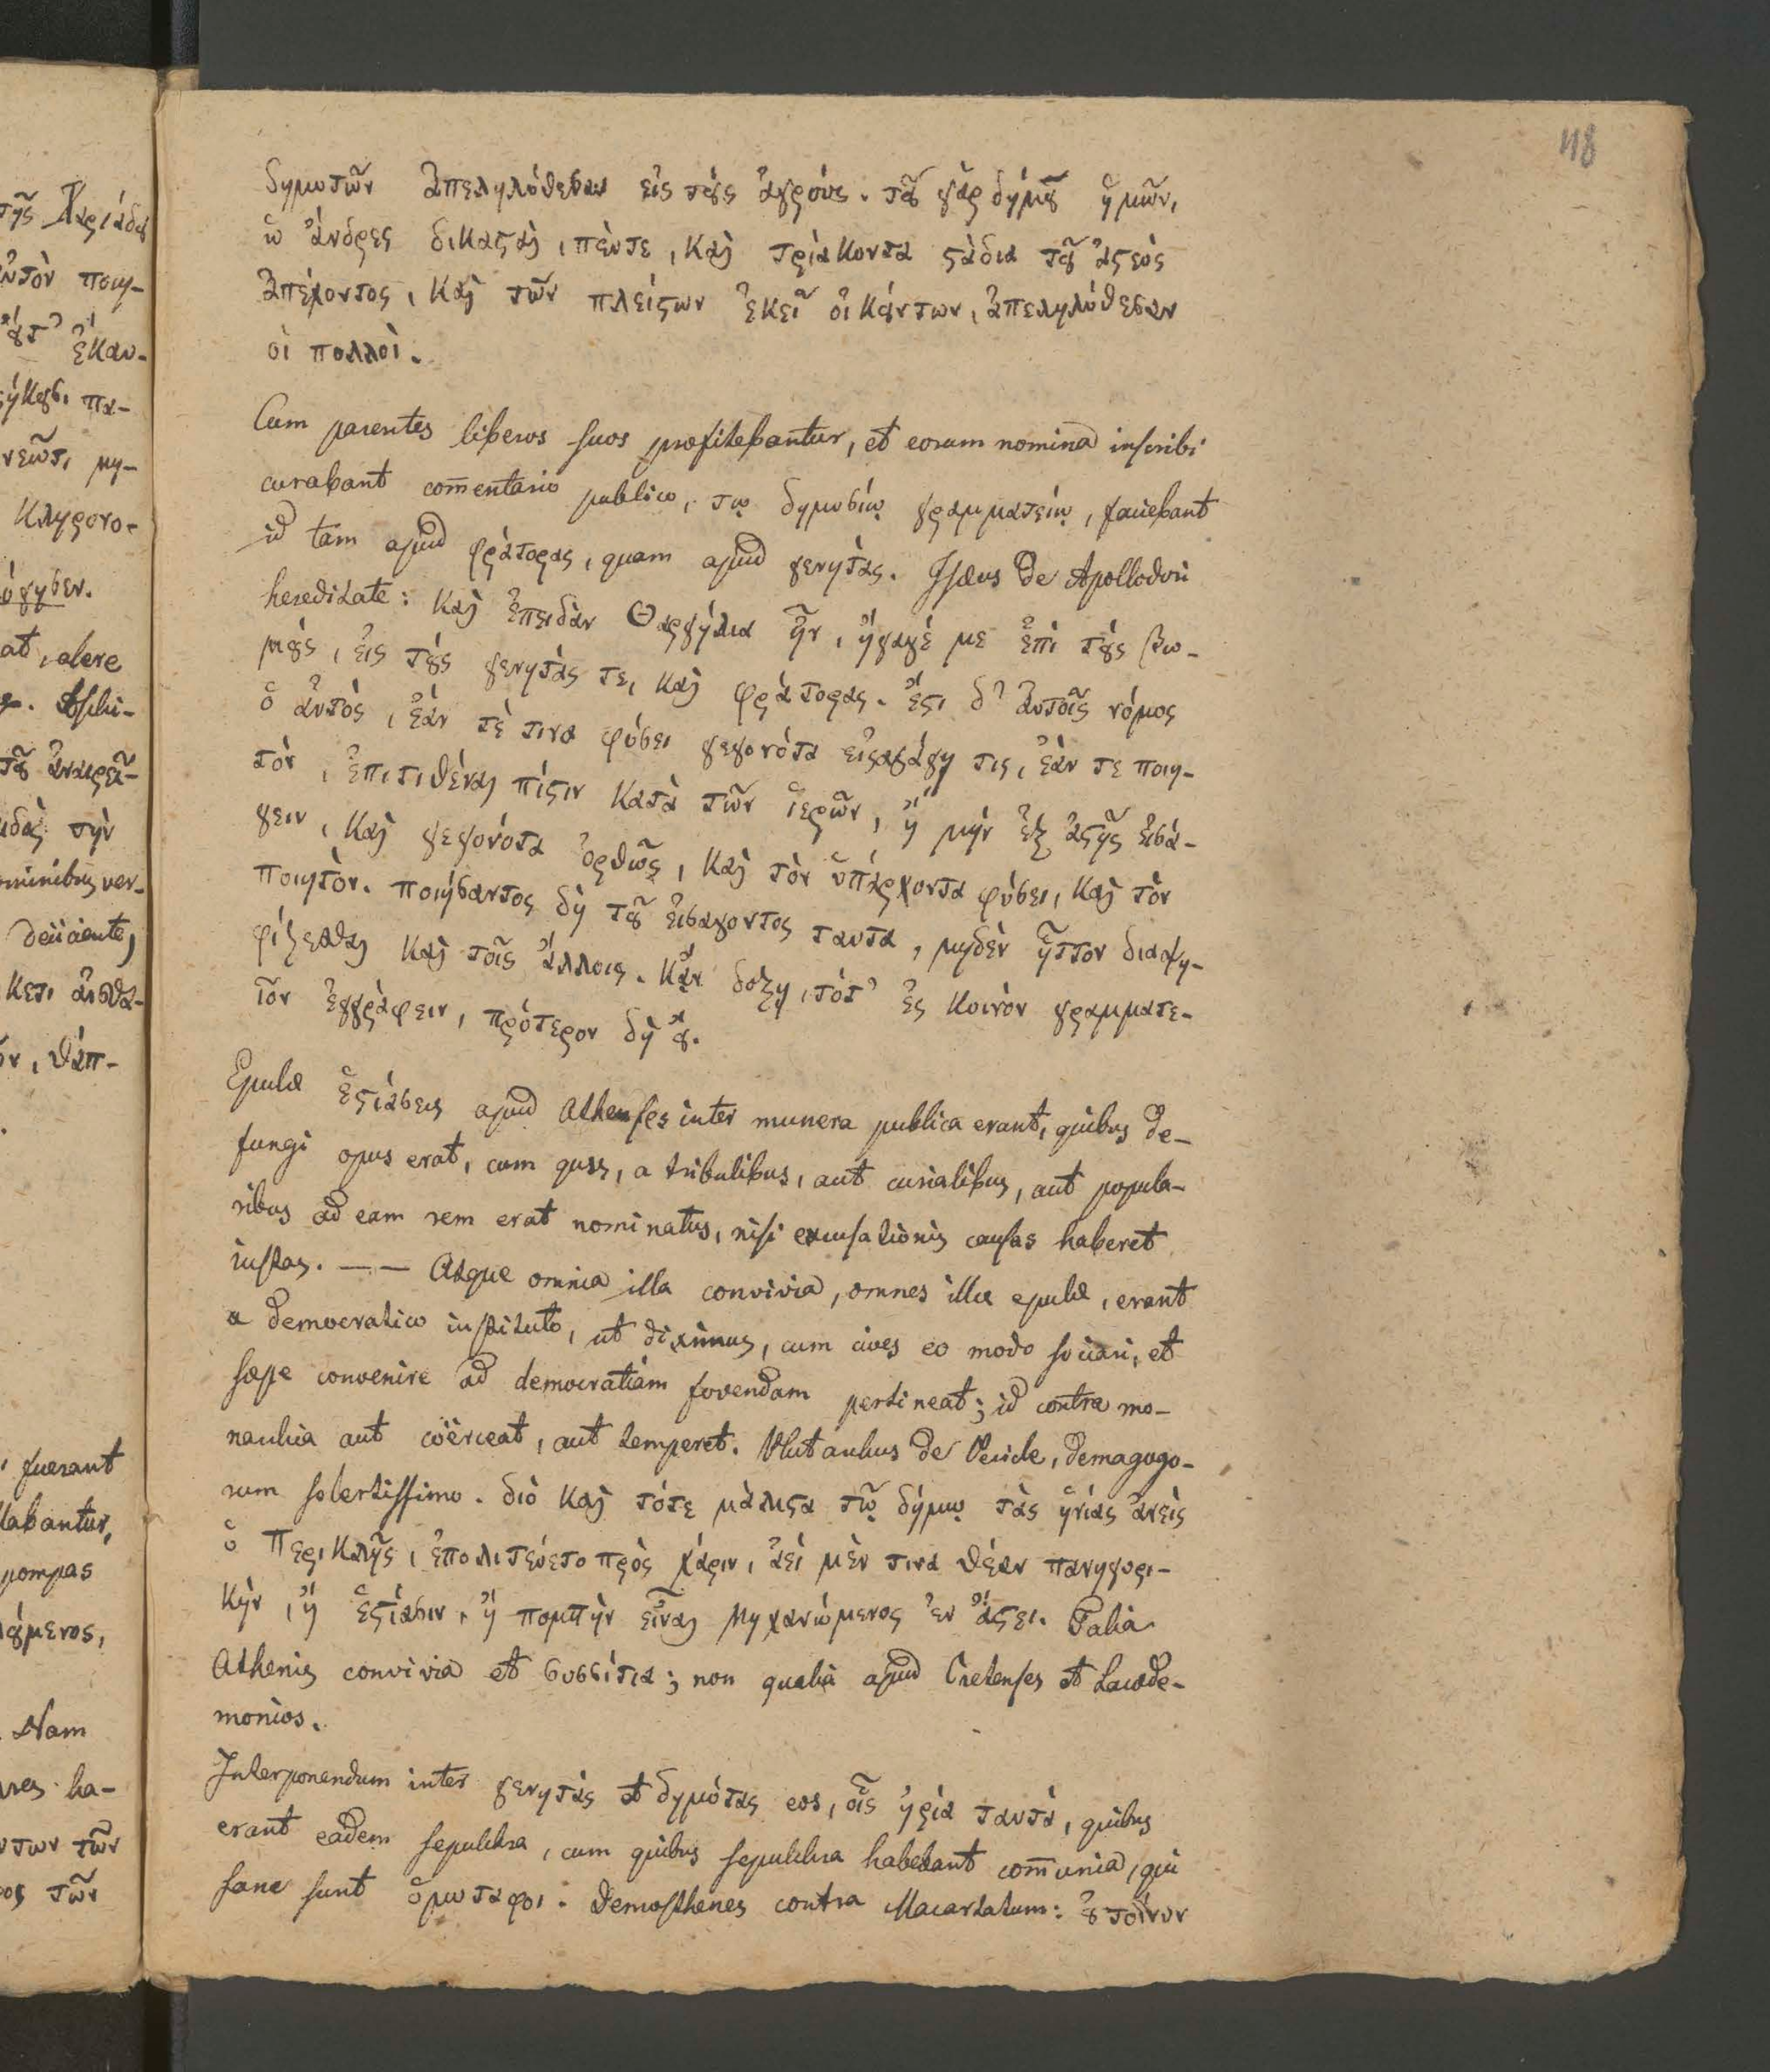 118
δημοτῶν ἀπεληλύθεσαν εἰς τοὺς ἀγρούς. τοῦ γὰρ δήμου ἡμῶν,
ὦ ἄνδρες δικασταὶ, πέντε, καὶ τριάκοντα στάδια τοῦ ἄστεος
ἀπέχοντος, καὶ τῶν πλείστων ἐκεῖ οἰκούντων, ἀπεληλύθεσαν
οἱ πολλοὶ.
Cum parentes liberos suos profitebantur, et eorum nomina inscribi
curabant com̄entario publico, τῳ δημοσίῳ γραμματείῳ, faciebant
id tam apud φράτορας, quam apud γενητὰς. Isæus de Apollodori
hereditate: καὶ ἐπειδὰν Θαργήλια ἦν, ἤγαγέ με ἐπὶ τοὺς βω-
μοὺς, εἰς τοὺς γενητὰς τε, καὶ φράτορας. ἔστι δ' ἀυτοῖς νόμος
ὁ ἀυτὸς, ἐάν τέ τινα φύσει γεγονότα εἰσαγάγῃ τις, ἐὰν τε ποιη-
τὸν, ἐπιτιθέναι πίστιν κατὰ τῶν ἱερῶν, ἤ μὴν ἐξ ἀστῆς εἰσά-
γειν, καὶ γεγονότα ὀρθῶς, καὶ τὸν ὑπάρχοντα φύσει, καὶ τὸν
ποιητὸν. ποιήσαντος δὴ τοῦ εἰσαγοντος ταυτα, μηδὲν ἧττον διαψη-
φίζεσθαι καὶ τοῖς ἄλλοις. κᾂν δοξῃ, τότ' ἐς κοινὸν γραμματε-
ῖον ἐγγράφειν, πρότερον δὴ οὔ.
Epulæ ἑστιάσεις apud Athenses inter munera publica erant, quibus de-
fungi opus erat, cum quis, a tribulibus, aut curialibus, aut popula-
ribus ad eam rem erat nominatus, nisi excusationis causas haberet
iustas. — — Atque omnia illa convivia, omnes illæ epulæ, erant
a democratico instituto, ut diximus, cum cives eo modo sociari, et
sæpe convenire ad democratiam fovendam pertineat; id contra mo-
narchia aut coërceat, aut temperet. Plutarchus de Pericle, demagogo-
rum solertissimo. διὸ καὶ τότε μάλιστα τῷ δήμῳ τὰς ἡνίας ἀνεὶς
ὁ Περικλῆς, ἐπολιτεύετο πρὸς χάριν, ἀεὶ μὲν τινα θέαν πανηγυρι-
κὴν, ἤ ἑστίασιν, ἤ πομπὴν εἶναι μηχανώμενος ἐν ἄστει. Talia
Athenis convivia et συσσίτια; non qualia apud Cretenses et Lacede-
monios.
Interponendum inter γενητὰς et δημότας eos, οἷς ἠρία ταυτὰ, quibus
erant eadem sepulchra, cum quibus sepulchra habebant com̄unia, qui
sane sunt ὁμωταφοι. Demosthenes contra Macartatum: οὐ τοίνυν